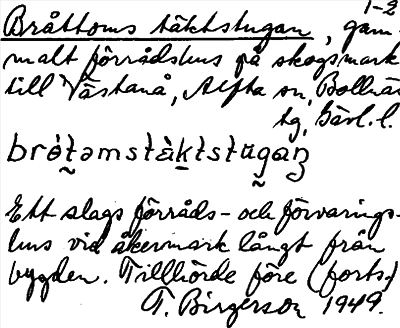 1-2
Bråttoms täktstugan, gam-
malt förrådshus på skogsmark
till Västanå, Alfta sn, Bollnäs
tg, Gävl. l.
brò̀t̰əmstàk̠tstʉga̰ṇ
Ett slags förråds- och förvarings-
hus vid åkermark långt från
bygden. Tillhörde före (forts.)
T. Birgerson 1949.